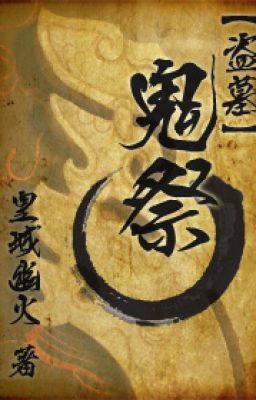 【盗墓】
鬼祭
皇城幽火 著